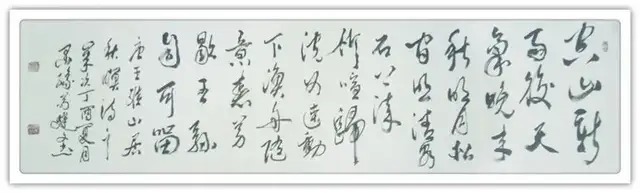 空山新
雨後天
氣晚來
秋明月松
間照清泉
石上流
竹喧歸
浣女蓮動
下漁舟隨
意春芳
歇王孫
自可留
唐王維山居
秋暝詩
歲次丁酉夏月